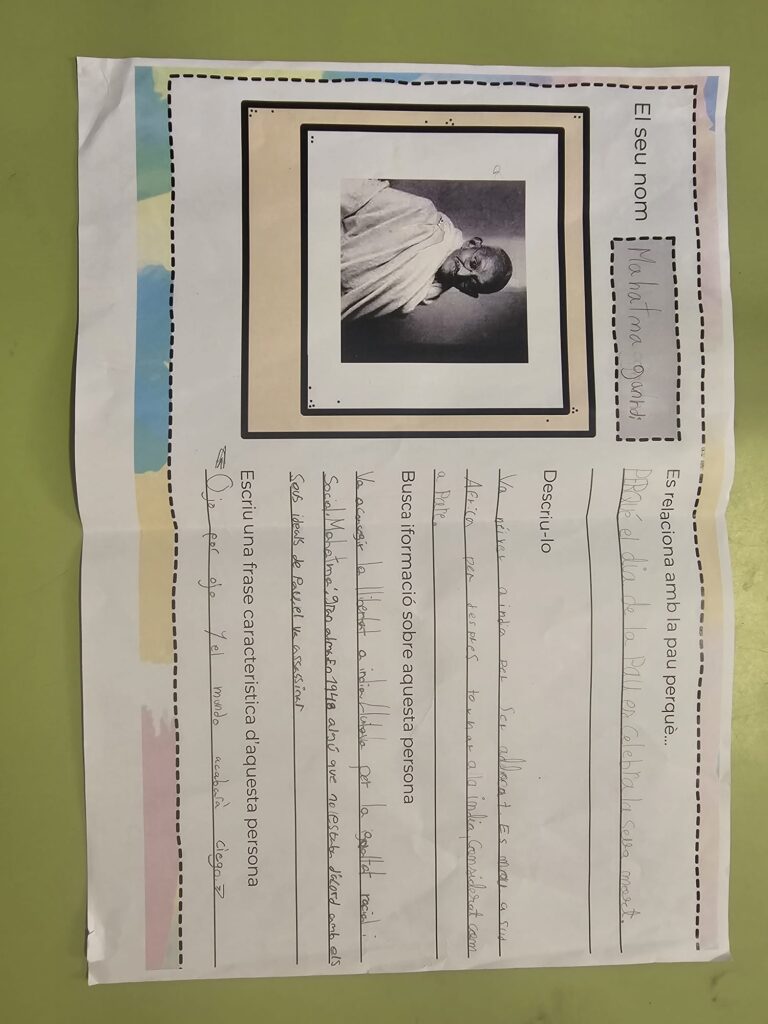 El seu nom
Mahatma gandi
Es relaciona amb la pau perquè...
PERQUÉ el dia de la PAU es celebra la seva mort.
Descriu-lo
Va néixer a india per ser advocat Es mou a sud
Africa per despres tornar a la india, Considerat com
a Pare.
Busca iformació sobre aquesta persona
Va aconsegir la llibertat a india, lluitava per la igualtat racial i
Social, Mahatma: gran alma En 1948 algú que no estaba d'acord amb els
Seus ideals de Pau, el va assassinar
Escriu una frase caracteristica d'aquesta persona
Ojo por ojo y el mundo acabarà ciego